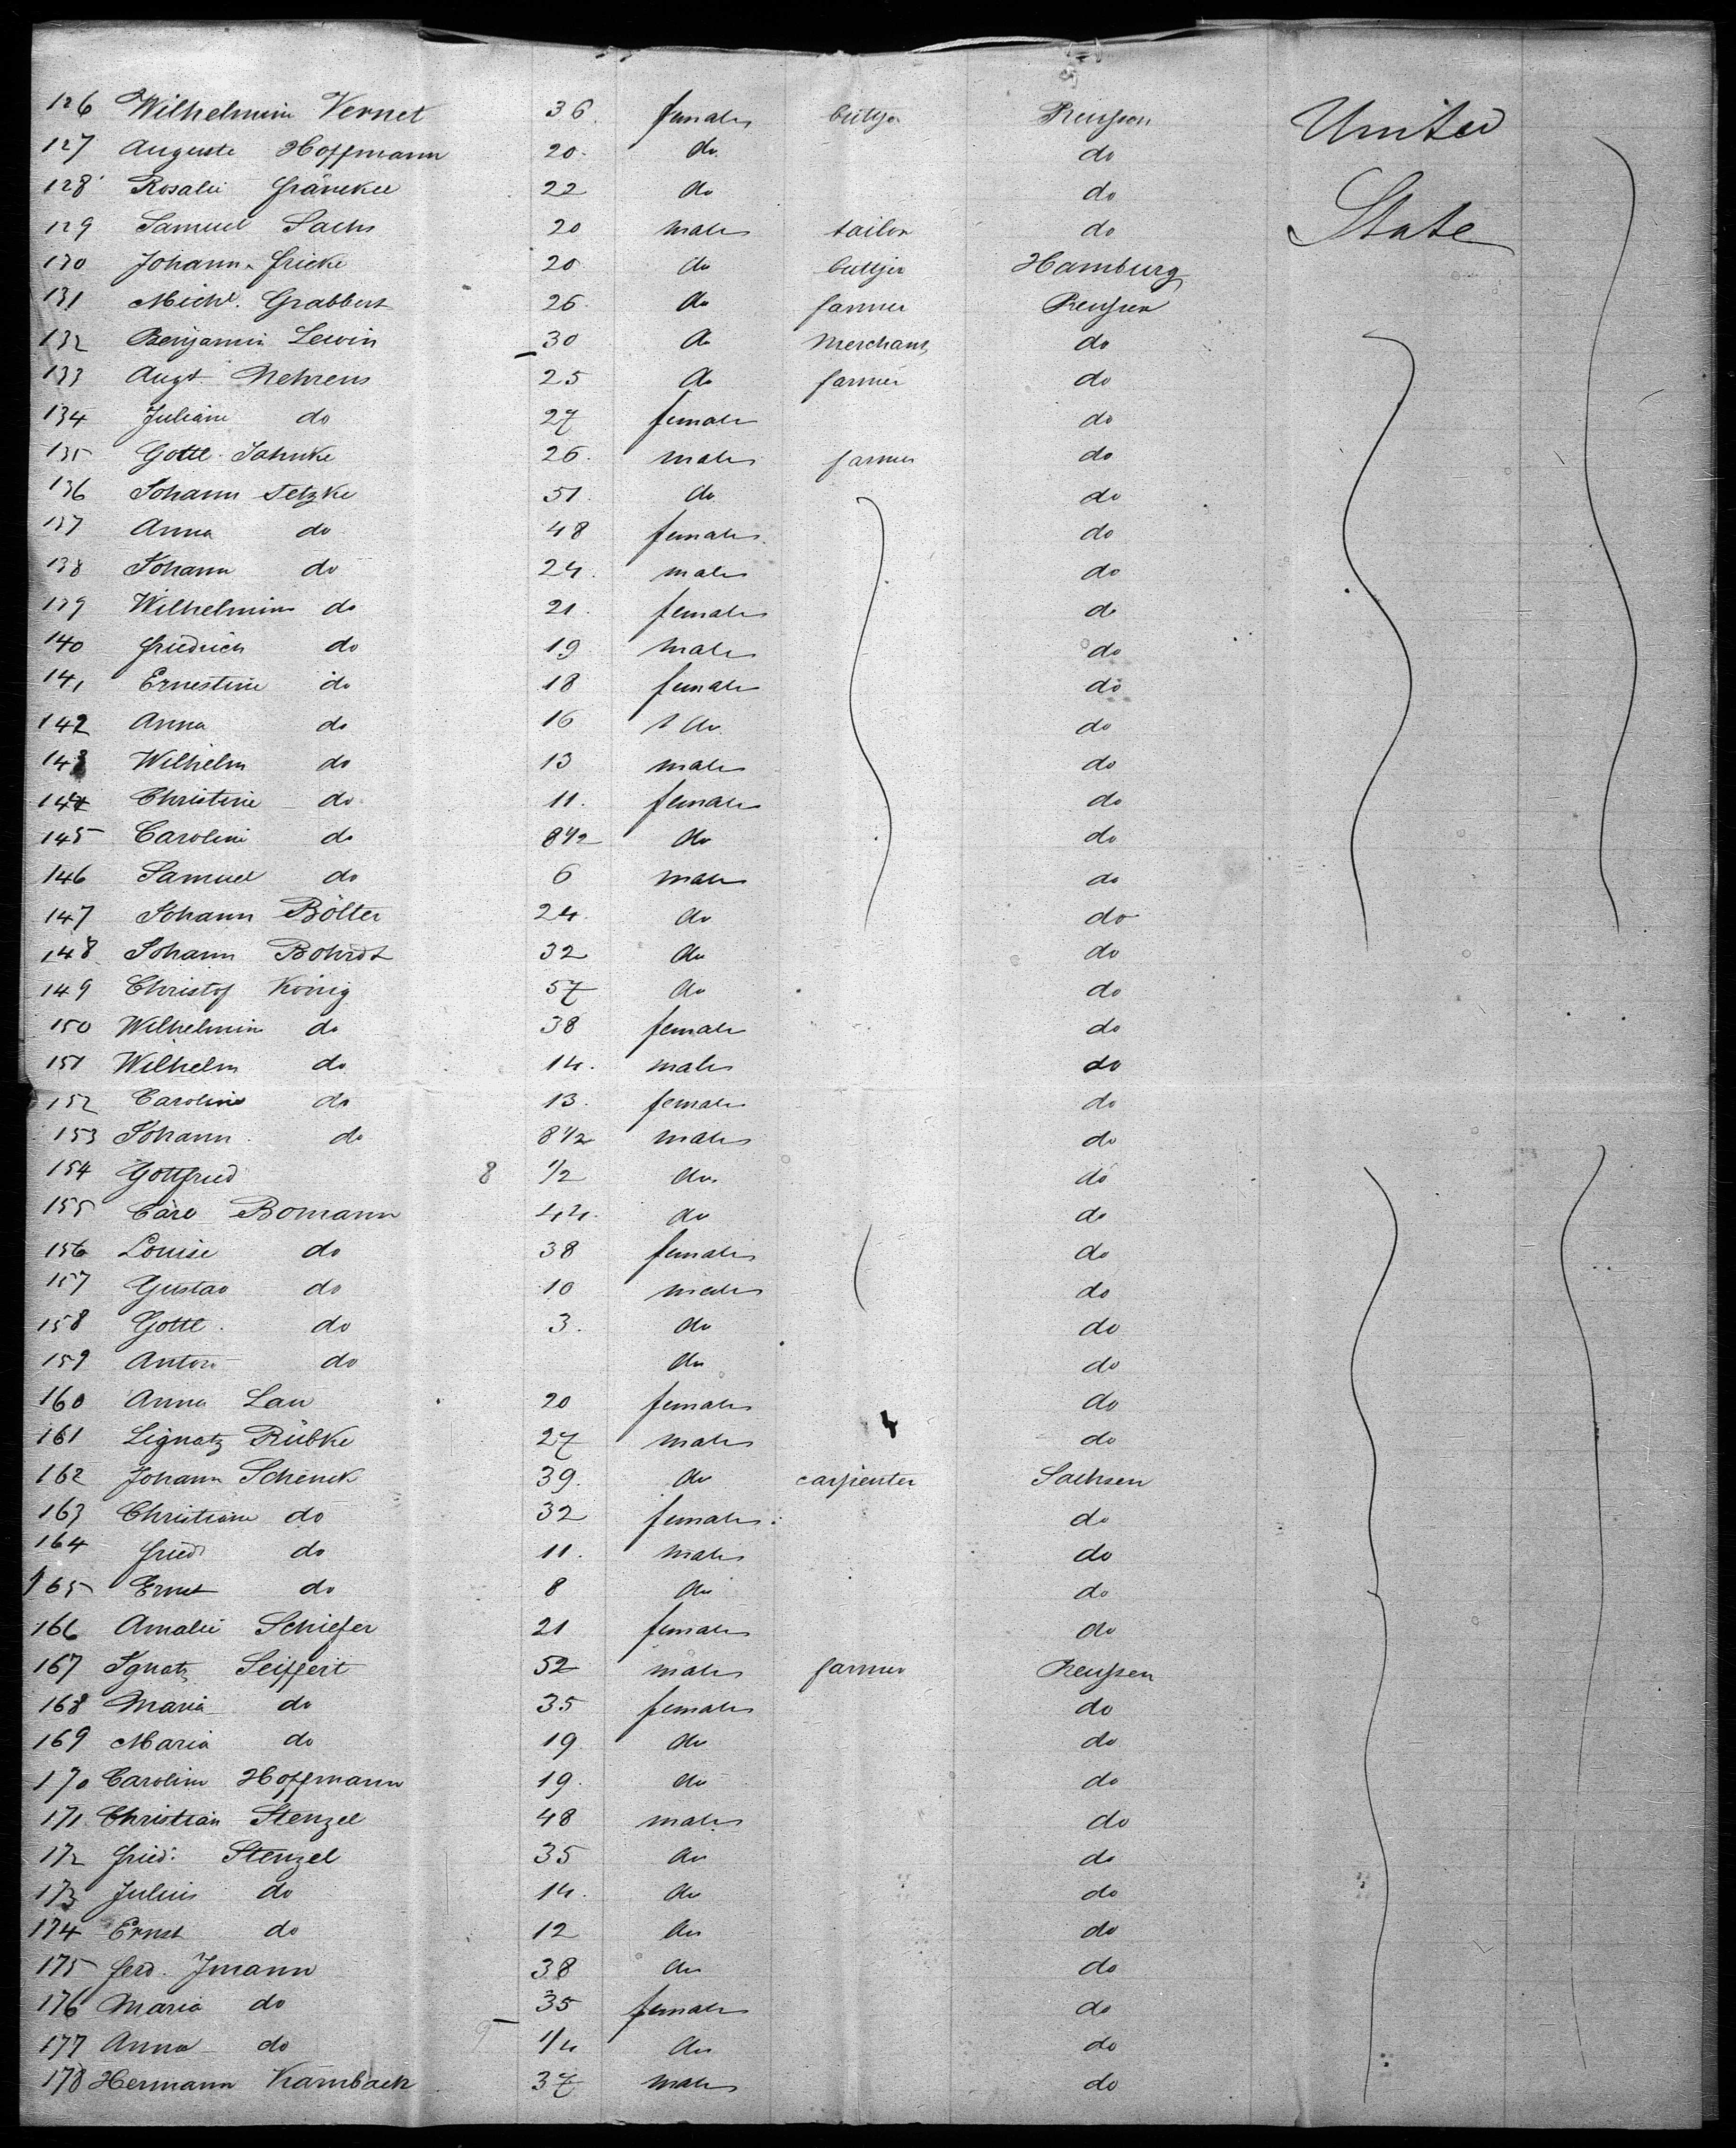 126 Wilhelmin Vernet 36. females Preussen United
127 Auguste Hoffmann 20. do. do
128 Rosalie 22 do do
129 Samuel Sachs 20 males tailor do State
130 Johann Fricke 20 do büttjer Hamburg
131 Michl. Grabbert 26. do farmer Preussen
132 Benjamin Lewin 30 do Merchant do
133 Augt. Mehrens 25 do farmer do
134 Juliane do 27 females do
135 Gottl. Jahnke 26. males farmer do
136 Johann Tetzke 51. do do
137 Anna do 48 females do
138 Johann do 24. males do
139 Wilhelmine do 21. females do
140 Friedrich do 19 males do
141 Ernestine do 18 females do
142 Anna do 16 do do
143 Wilhelm do 13 males do
144 Christine do 11. females do
145 Caroline do 8 1/2 do do
146 Samuel do 6 males do
147 Johann Bölter 24. do do
148 Johann Bohrdt 32 do do
149 Christof König 57 do do
150 Wilhelmin do 38 females do
151 Wilhelm do 14. males do
152 Caroline do 13. females do
153 Johann do 8 1/2 males do
154 Gottfried 8 1/2 do. do
155 Carl Bomann 44. do do
156 Louise do 38 females do
157 Gustav do 10 males do
158 Gottl. do 3. do do
159 Anton do do do
160 Anna Lau 20 females do
161 Lignatz Rübke 27 males do
162 Johann Schenck 39. do carpienter Sachsen
163 Christiane do 32 females do
164 Fried. do 11. males do
165 Ernst do 8 do do
166 Amalie Schiefer 21 females do
167 Ignatz Seiffert 52 males farmer Preussen
168 Maria do 35 females do
169 Maria do 19 do do
170 Caroline Hoffmann 19. do do
171 Christian Stenzel 48 males do
172 Fried: Stenzel 35 do do
173 Julius do 14. do do
174 Ernst do 12 do do
175 Ferd. Jmann 38 do do
176 Maria do 35 females do
177 Anna do 1/4 do do
178 Hermann Kambach 37 males do